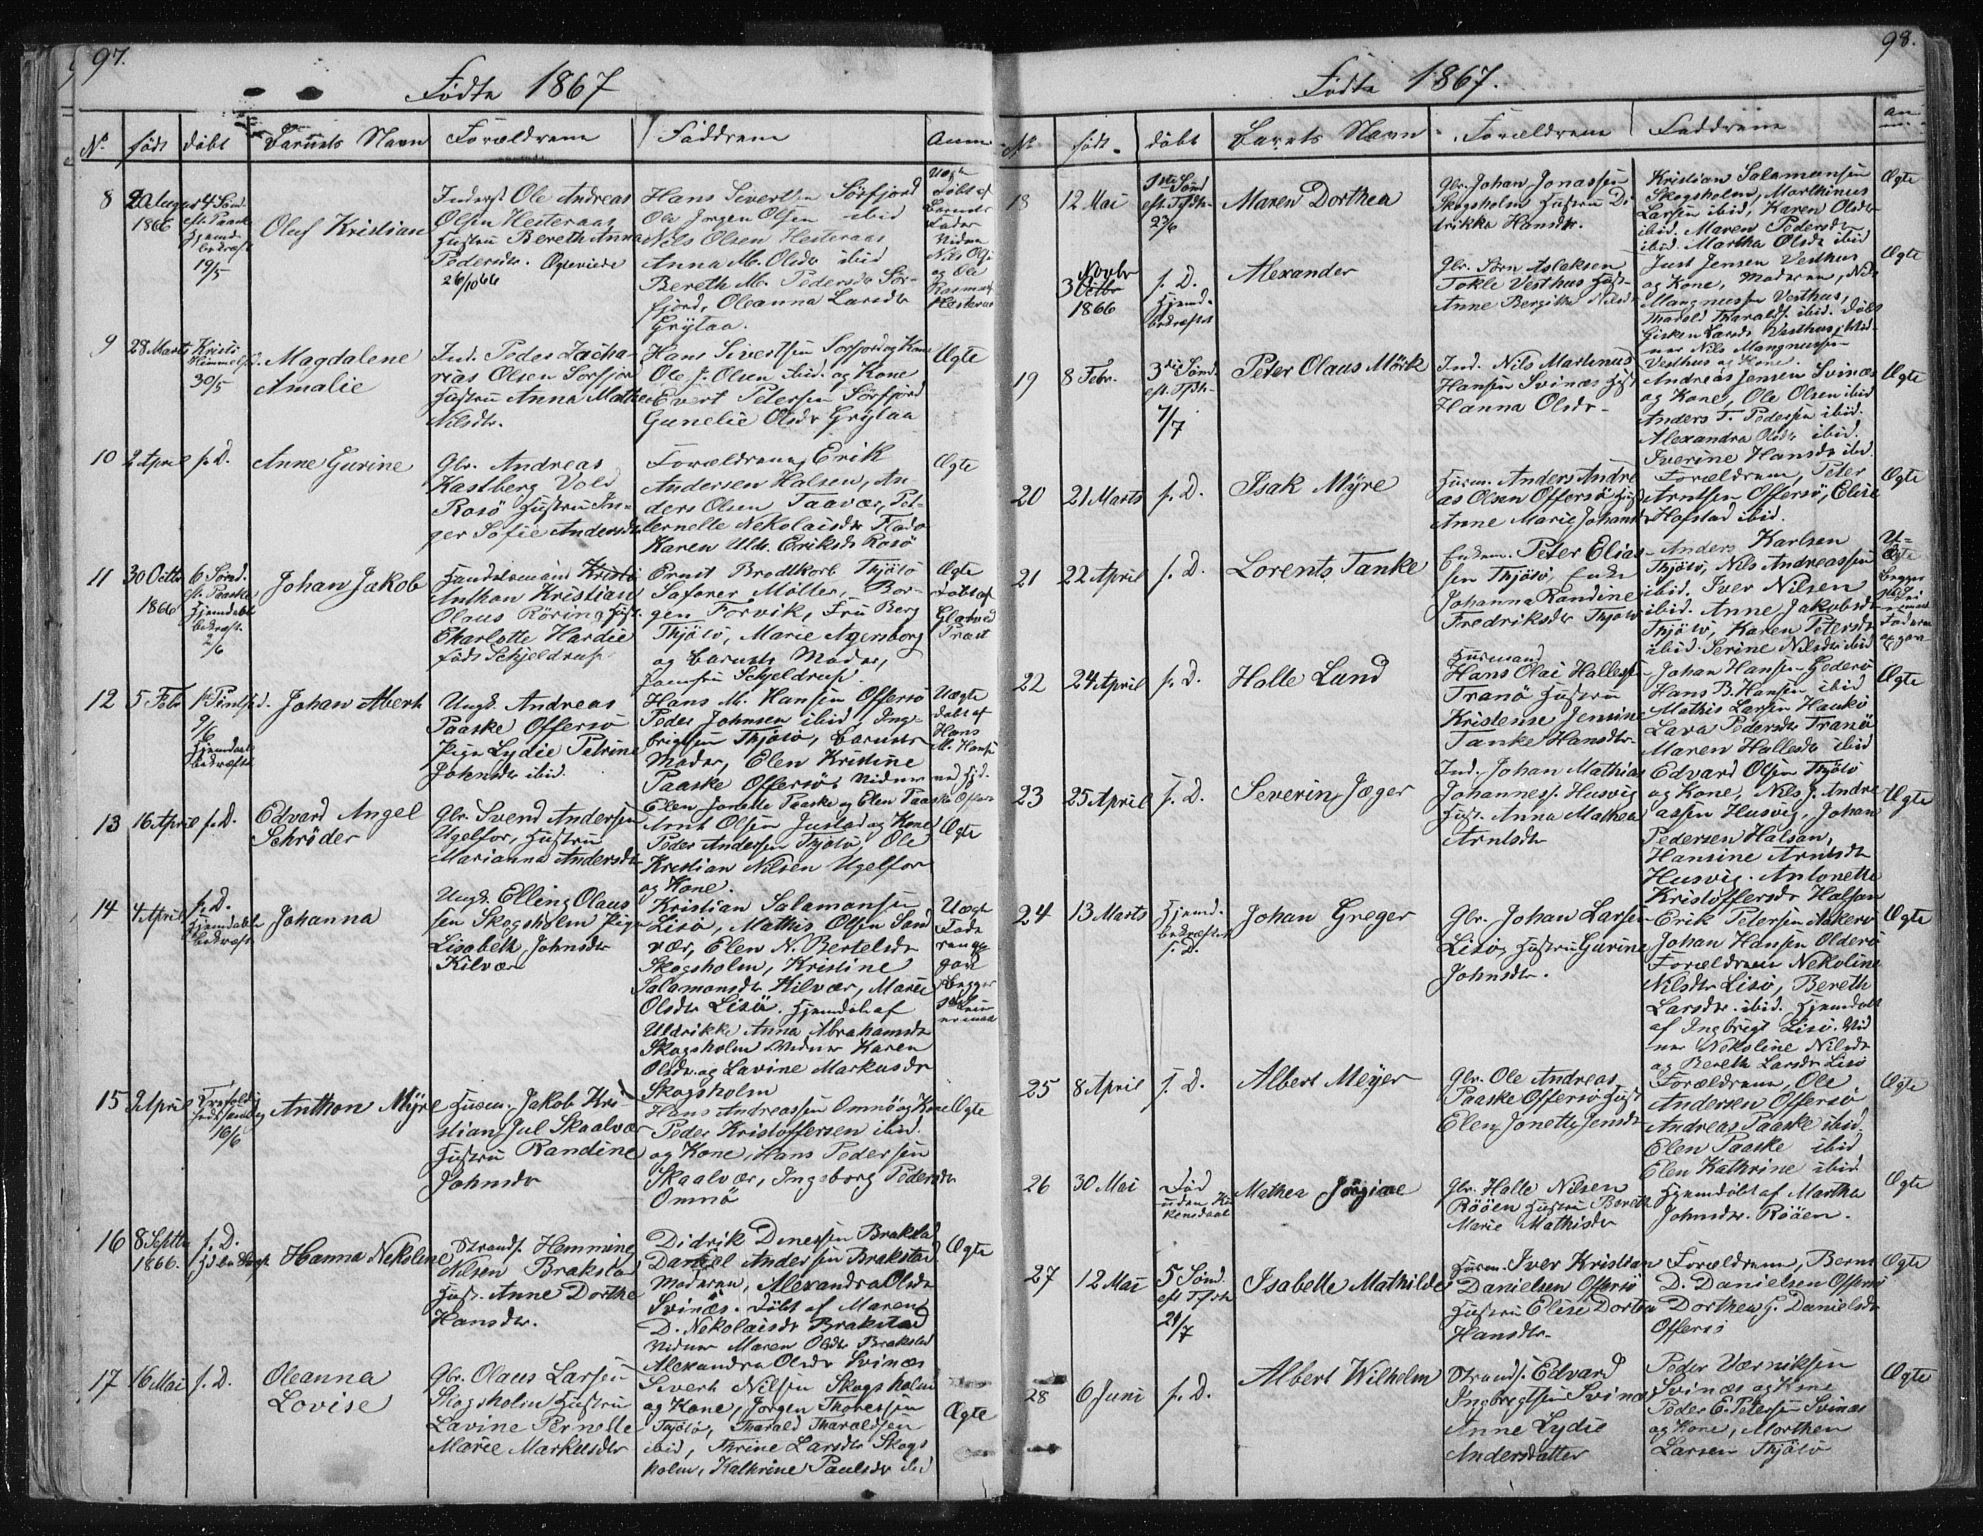 97.
Födte 1867
No födt döbt Barnets Navn Forældrene Faddrene Anm
8 20 August 1866 4 Sönd. eft. Paaske Hjemd. bekræft. 19/5
Oluf Kristian
Inderst Ole Andreas
Olsen Hesteraas
Hustru Bereth Anna
Pedersdr. Ægteviede
26/10 66
Hans Sivertsen Sörfjord
Ole Jörgen Olsen ibid
Nils Olsen Hesteraas
Anna M. Olsdr ibid
Bereth M. Pedersdr Sör-
fjord, Oleanna Larsdr
Grytaa.
Uægte
döbt af
Barnets
Fader
Vidner
Nils Olsen
og Ole
Rasmus
Hesteraas
9 28 Marts Kristi Himmelf. d. 30/5
Magdalene
Amalie
Ind. Peder Zacha-
rias Olsen Sörfjor
Hustru Anna Mathea
Nilsdr.
Hans Sivertsen Sörfjord og Kone
Ole J. Olsen ibid. og Kone
Evert Petersen Sörfjord
Gunelie Olsdr Grytaa
Ægte
10 2 April s. D. Anne Gurine
Gbr. Andreas
Kastberg Vold
Rosö Hustru In-
ger Sofie Andersdr
Forældrene, Erik
Andersen Halsen, An-
ders Olsen Taavær, Pet-
ternelle Nekolaisdr Flado
Karen Uldr. Eriksdr Rosö
Ægte
11 30 Octbr 1866 6 Sönd. eft. Paaske Hjemdöbt bekræft. 2/6
Johan Jakob
Handelsmand Kristi
Anthon Kristian
Olaus Röring Hust.
Charlotte Hardie
föds Schjeldrup
Ernst Brodtkorb Thjötö
Jaförer Möller, Bor-
gen Forvik, Fru Berg
Thjötö, Marie Agersborg
og Barnets Moder,
Jomfru Schjeldrup.
Ægte
döbt af
Gladtved
Præst
12 5 Febr 1st Pintsed. 9/6 Hjemdöbt bekræftet
Johan Abert
Ungk. Andreas
Paaske Offersö
Pige Lydie Petrine
Johnsdr ibid.
Hans M. Hansen Offersö
Peder Johnsen ibid, Ing-
brigtsen Thjötö, Barnets
Moder, Elen Kristine
Paaske Offersö Vidner
Elen Jonette Paaske og Elen Paaske Offersö
Uægte
döbt af
Hans
M. Hansen
ved Hjd.
13 16 April s. D. Edvard Angel
Schröder
Gbr. Svend Andersen
Ugelfor, Hustru
Marianna Andersdr
Arnt Olsen Justad og Kone
Peder Andersen Thjötö, Ole
Kristian Nilsen Ugelfor
og Kone.
Ægte
14 4 April s. D. Hjemdöbt bekræft
Johanna
Ungk. Elling Olaus
sen Skogsholm Pige
Lisabeth Johnsdr
Kilvær
Kristian Salamonsen
Lisö, Mathis Olsen Sand
vær, Elen N. Bertelsdr
Skogsholm, Kristine
Salamonsdr Kilvær, Marie
Olsdr Lisö. Hjemdöbt af
Uldrikke Anna Abrahamsdr
Skogsholm Vidner Karen
Olsdr. og Lavine Markusdr
Skogsholm
Uægte
15 2 April Trefoldigheds Söndag 16/6
Anthon Myre
Husm. Jakob Kri-
stian Jul Skaalvær
Hustru Randine
Johnsdr
Hans Andreassen Omnö og Kone
Peder Kristoffersen ibid.
og Kone, Hans Pedersen
Skaalvær, Ingeborg Pedersdr
Omnö
Ægte
16 8 Septbr 1866. s. D. Hjd. bekræft. Hanna Nekoline
Strands. Hemming
Nilsen Brakstad
Hust. Anne Dorthe
Hansdr.
Didrik Dinessen Brakstad
Daniel Andersen Brakstad
Moderen, Alexandra Olsdr
Svinæs. Döbt af Maren
D. Nekolaisdr Brakstad
Vidner Maren Olsdr Brakstad
Alexandra Olsdr Svinæs
Ægte
17 16 Mai s. D. Oleanna
Lovise
Gbr. Olaus Larsen
Skogsholm Hustru
Lavine Pernelle
Marie Markusdr
Sivert Nilsen Skogsholm
og Kone, Jörgen Thoressen
Thjötö, Tharald Tharaldsen
ibid, Thrine Larsdr Skogs
holm, Kathrine Paulsdr ibid
Ægte
98.
Födte 1867.
No födt. döbt Barnets Navn Forældrene Faddrene an
18 12 Mai 1ste Sönd eft. Tsdr. 23/6 Maren Dorthea
Gbr. Johan Jonassen
Skogsholm Hustru Di
drikke Hansdr.
Kristian Salamonsen
Skogsholm, Marthinus
Larsen ibid, Karen Olsdr
ibid. Maren Pedersdr
ibid. Martha Olsdr ibid
Ægte
3 Novbr Octbr 1866 s. D. Hjemd. bekræftet
Alexander
Gbr. Jörn Aslaksen
Tokle Vesthus Hust.
Anne Bergitte Nilsdr
Just Jensen Vesthus
og Kone, Moderen, Nils
Mangnussen Vesthus,
Tharald Tharalds. ibid. Döbt
Gisken Larsdr Vesthus, Vid-
ner Nils Mangnussen
Vesthus og Kone.
Ægte
19 8 Febr. 3die Sönd. eft. Tsdr. 7/7
Peter Olaus Mörk
Ind. Nils Martinus
Hansen Svinæs Hust
Hanna Olsdr.
Andreas Jensen Svinæs
og Kone, Ole Olsen ibid
Anders T. Pedersen ibid.
Alexandra Olsdr ibid.
Iverine Hansdr ibid.
Ægte
20 21 Marts s. D. Isak Myre
Husm. Anders Andre
as Olsen Offersö Hust
Anne Marie Johansdr
Forældrene, Peter
Arntsen Offersö, Elise
Hofstad ibid.
Ægte
21 22 April s. D. Lorents Tanke
Enkem. Peter Elias-
sen Thjötö, Enke
Johanna Randine
Fredriksdr Thjötö
Anders Karlsen
Thjötö, Nils Andreassen
ibid. Iver Nilsen
ibid. Anne Jakobsdr
Thjötö, Karen Petersdr
ibid. Serine Nilsdr ibid
U-
Ægte
22 24 April s. D. Halle Lund
Husmand
Hans Olai Hallesen
Tranö Hustru
Kristense Jensine
Tanke Hansdtr.
Johan Hansen Goderö
Hans B. Hansen ibid
Mathis Larsen Haukö
Lava Pedersdr Tranö
Maren Hallesdr ibid
Ægte
23 25 April s. D. Severin Jæger
Ind. Johan Mathias
Johanness. Husvig
Hust. Anna Mathea
Arntsdr
Edvard Olsen Thjötö
og Kone, Nils J. Andre
assen Husvig, Johan
Pedersen Halsan,
Hansine Arntsdr
Husvig. Antonette
Kristoffersdr Halsan
Ægte
24 13 Marts Hjemd. bekræftet s. D. Johan Greger
Gbr. Johan Larsen
Lisö, Hustru Gurine
Johnsdr.
Erik Petersen Aakerö
Johan Hansen Olderö
Forældrene Nekoline
Nilsdr Lisö, Bereth
Larsdr. ibid. Hjemdöbt
af Ingbrigt Lisö. Vid
ner Nekoline Nilsdr
og Bereth Larsdr Lisö
Ægte
25 8 April s. D. Albert Meyer
Gbr. Ole Andreas
Paaske Offersö Hust
Elen Jonette Jensdr
Forældrene, Ole
Andersen Offersö
Andreas Paaske ibid.
Elen Paaske ibid
Elen Kathrine ibid
Ægte
26 30 Mai Död uden Kirkensdaab Mathea Jörgine
Gbr. Halle Nilsen
Rööen Hustru Bereth
Marie Mathisdr
Hjemdöbt af Martha
Johnsdr. Rööen.
Ægte
27 12 Mai 5 Sönd. eft Tsdr 21/7 Isabelle Mathilde
Husm. Iver Kristian
Danielsen Offersö
Hustru Elise Dortea
Hansdtr.
Forældrene, Bernt
D. Danielsen Offersö
Dorthea G. Danielsdr
Offersö
Ægte
28 6 Juni s. D. Albert Wilhelm
Strands. Edvard
Ingbregtsen Svinæs
Anne Lydie
Andersdatter
Peder Værniksen
Svinæs og Kone
Peder E. Petersen Svinæs
og Kone, Morthen
Larsen Thjötö
Ægte